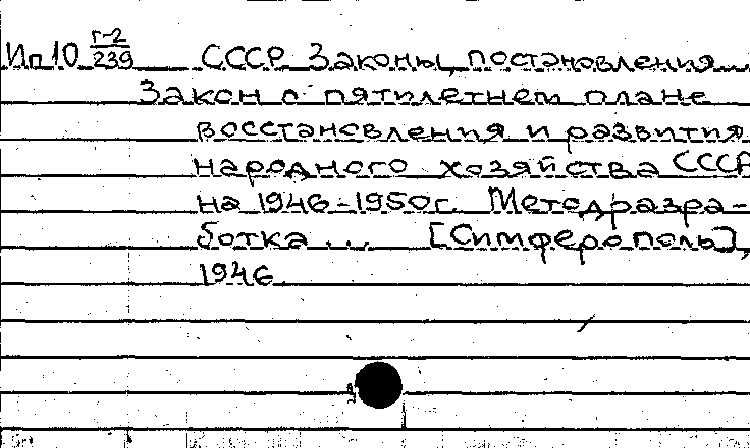 Ип10 Г-2/239 СССР. Законы, постановления...
Закон о пятилетнем плане
восстановления и развития
народного хозяйства СССР
на 1946-1950г. Методразра-
ботка... [Симферополь],
1946.